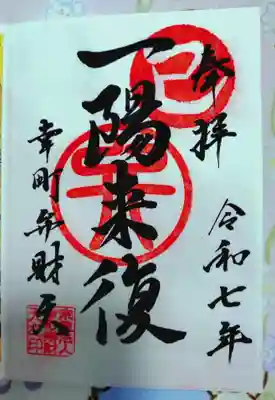 奉拝
令和七年
一陽来復
幸町弁財天